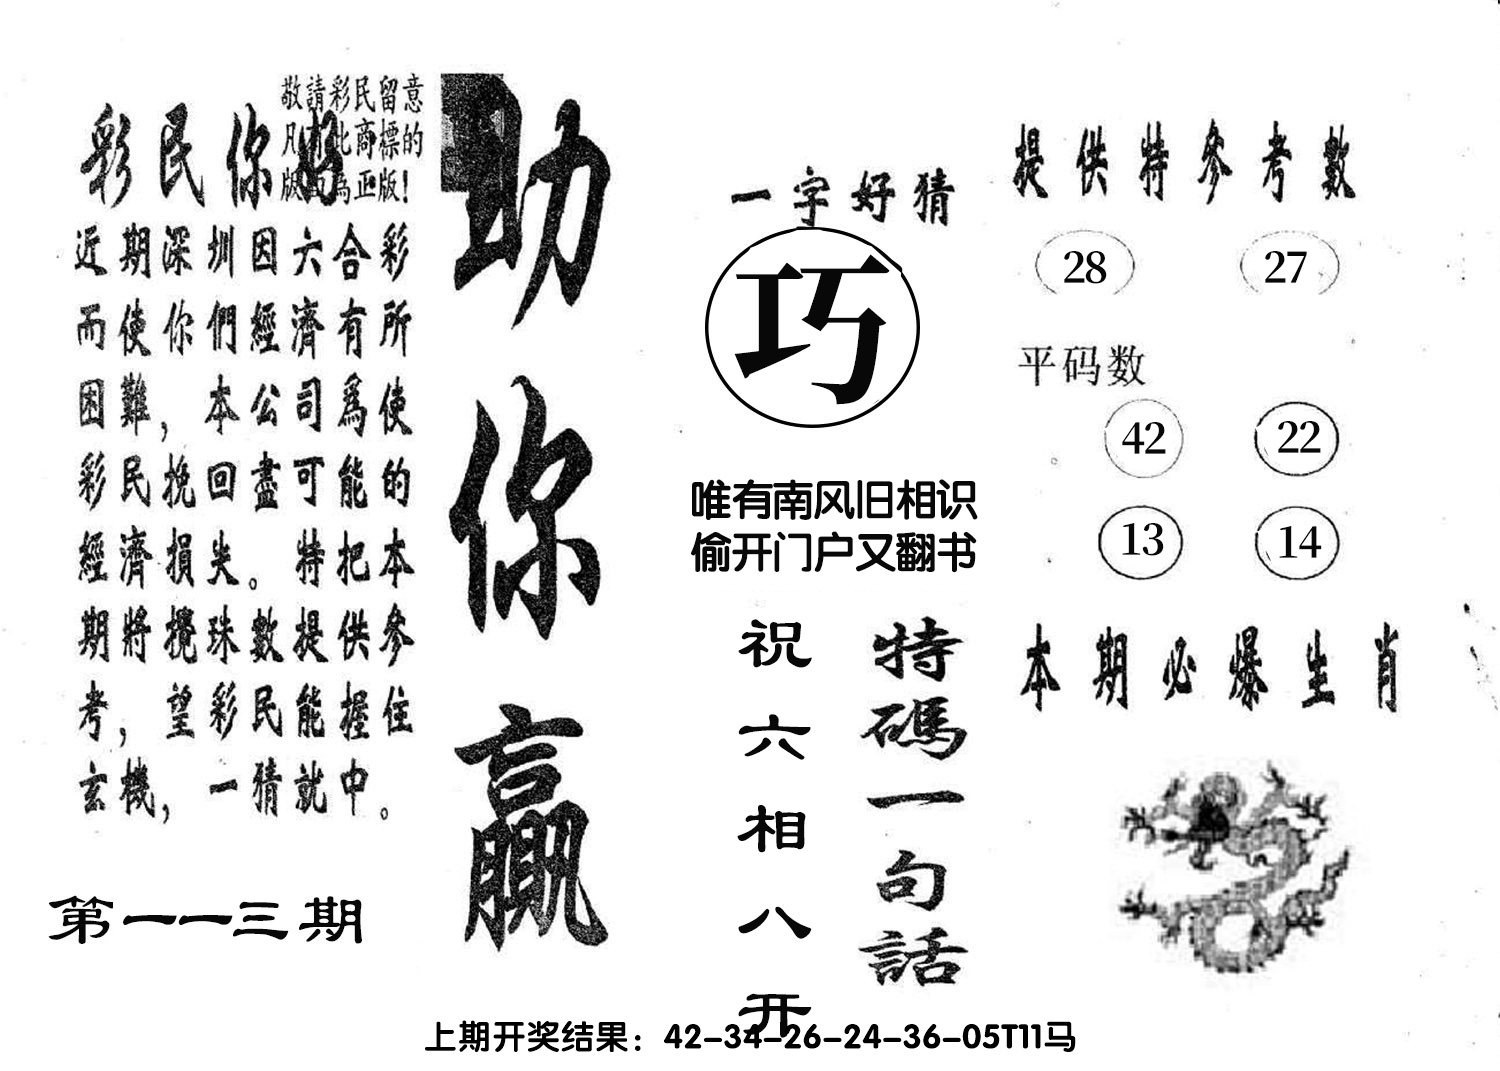 敬請彩民留意
凡有此商標的
版面為正版！
彩民你好
近期深圳因六合彩
而使你們經濟有所
困難，本公司爲使
彩民挽回盡可能的
經濟損失。特把本
期將攪珠數提供參
考，望彩民能握住
玄機，一猜就中。
第一一三期
助你贏
一字好猜
巧
唯有南风旧相识
偷开门户又翻书
特碼一句話
祝六相八开
提供特參考數
28 27
平码数
42 22
13 14
本期必爆生肖
上期开奖结果：42-34-26-24-36-05T11马